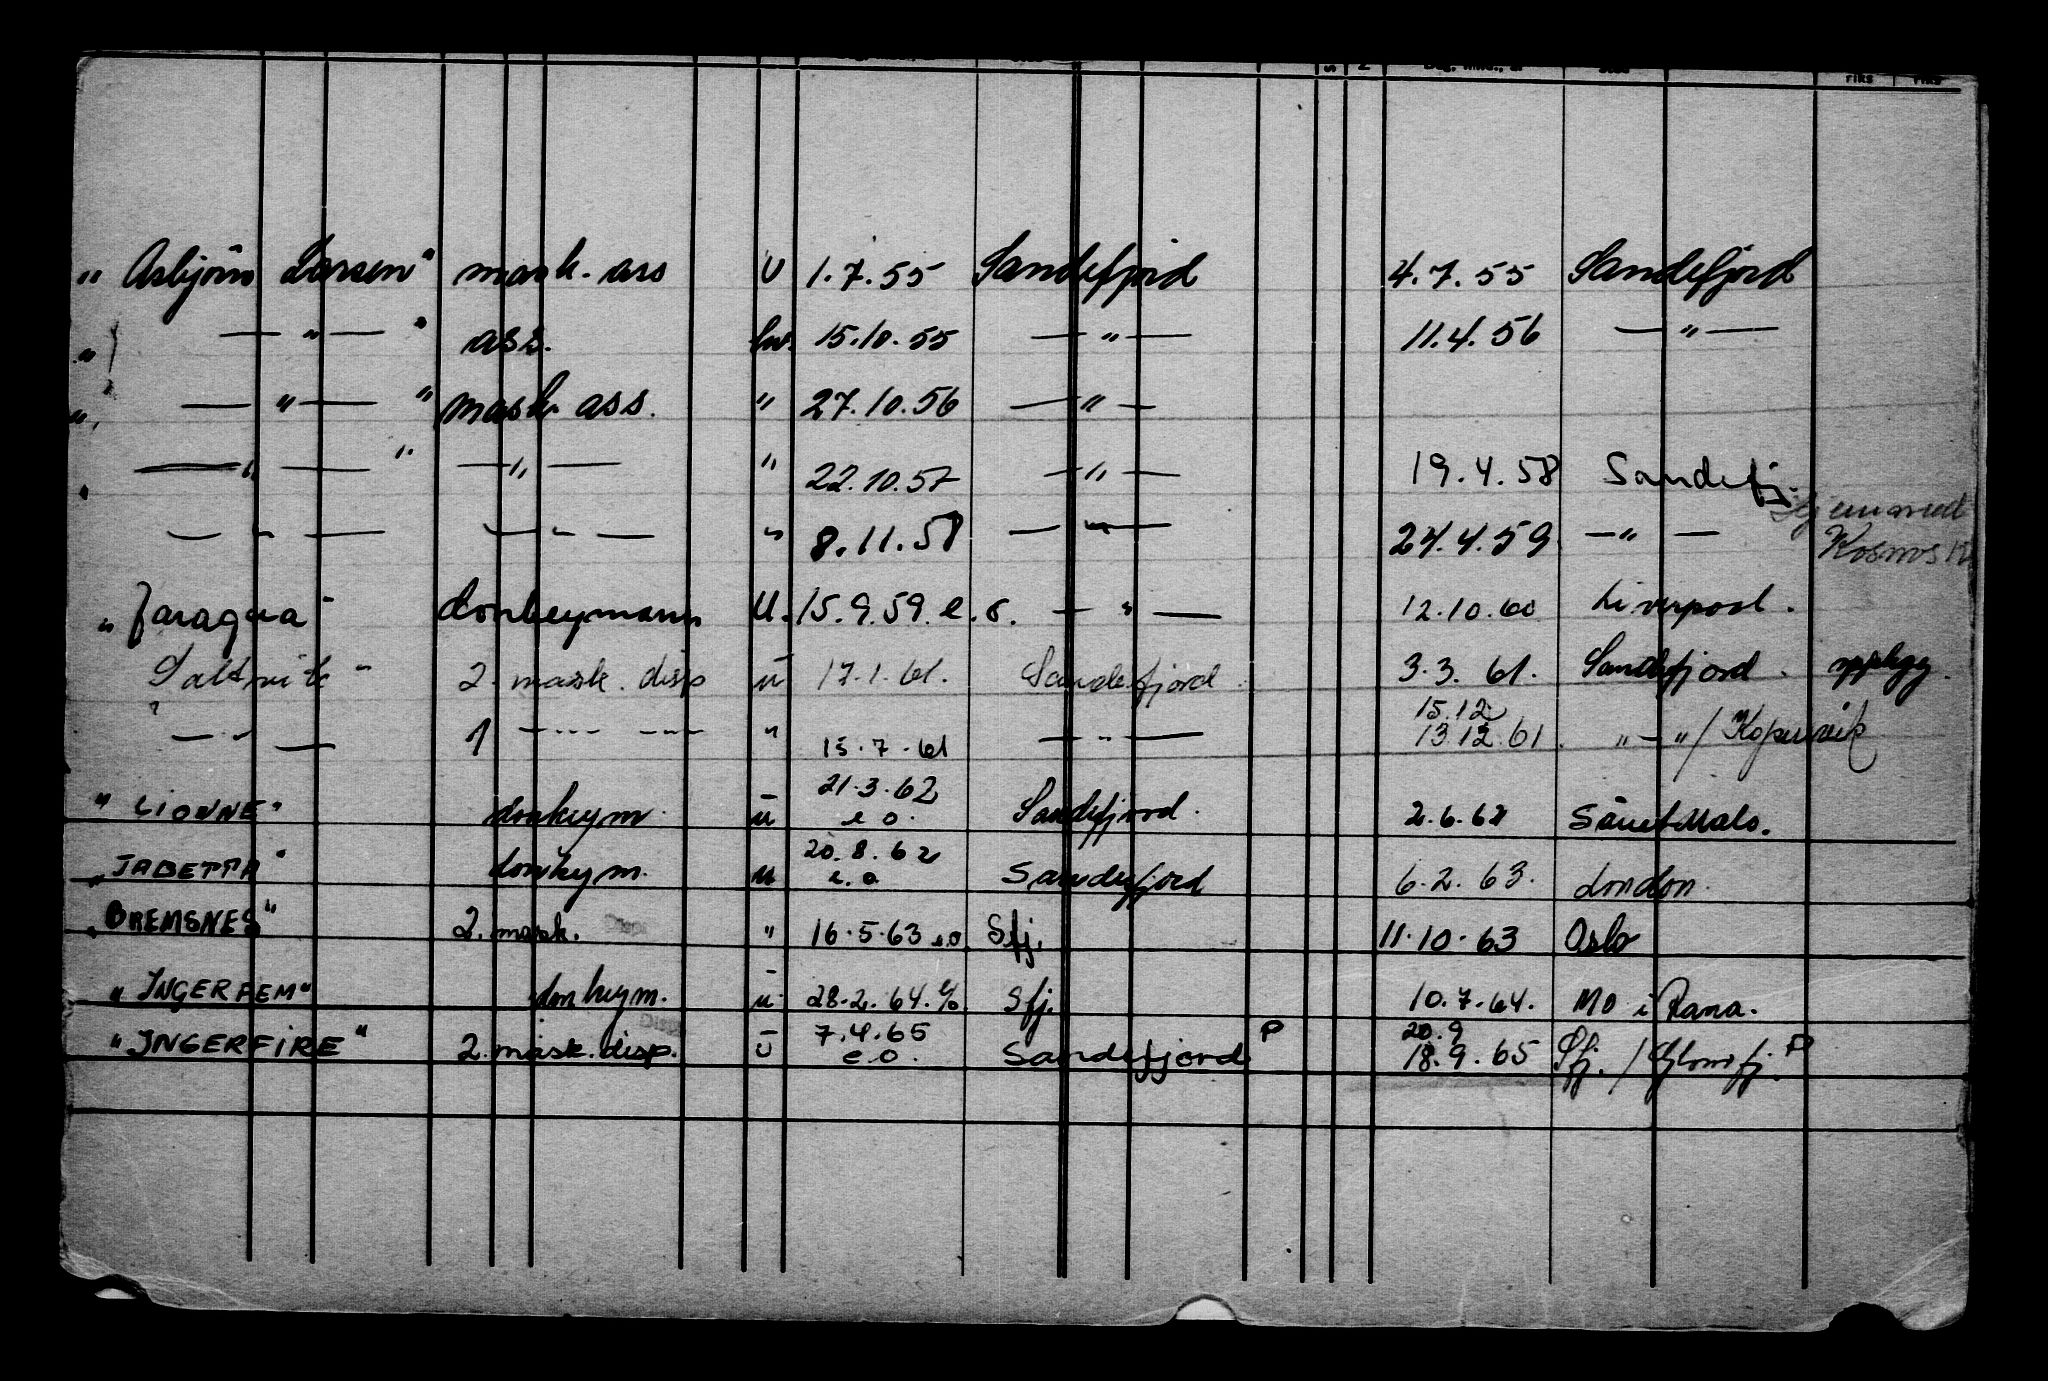 S 2 Riks Riks
" Asbjörn Larsen" mask. ass U 1.7.55 Sandefjord 4.7.55 Sandefjord
" — " — " ass. hv. 15.10.55 — " — 11.4.56 — " —
" — " — " mask ass. " 27.10.56 — " —
— " — " — " — " 22.10.57 — " — 19.4.58 Sandefj.
— " — — " — " 8.11.58 — " — 24.4.59 — " — Hjemsendt
Kosmos
" Jaragua" donkeymann U. 15.9.59. e.o. — " — 12.10.60 Liverpool.
Saltvik" 2. mask. disp u 17.1.61. Sandefjord. 3.3.61. Sandefjord. opplegg.
15.12
— " — 1 — " — " 15.7.61 — " — 13.12.61. " — " / Kopervik
21.3.62
" LIONNE" donkeym. u e o. Sandefjord. 2.6.62 SänctMalo.
20.8.62
" JABETTA" donkeym. u e.o Sandefjord 6.2.63. London.
"BREMSNES" 2. mask. " 16.5.63 e.o. Sfj. 11.10.63 Oslo
"INGERFEM" donkeym. u. 28.2.64. e/o. Sfj. 10.7.64. Mo i Rana.
7.4.65 P 20.9
"INGERFIRE" 2. mask. disp. U e.o. Sandefjord 18.9.65 Sfj. / Glomfj. P